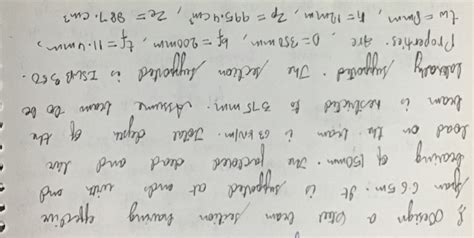 Q Design a steel beam section having effective
span 6.5m. It is supported at ends with end
bearing of 150mm. The factored dead and live
load on the beam is 63 kN/m. Total depth of the
beam is restricted to 375 mm. Assume beam to be
laterally supported. The section supported is ISLB 350.
Properties are, D = 350mm, bf = 200mm, tf = 11.4mm,
tw = 8mm, h = 12mm, Zp = 995.4cm³, Ze = 887. cm³